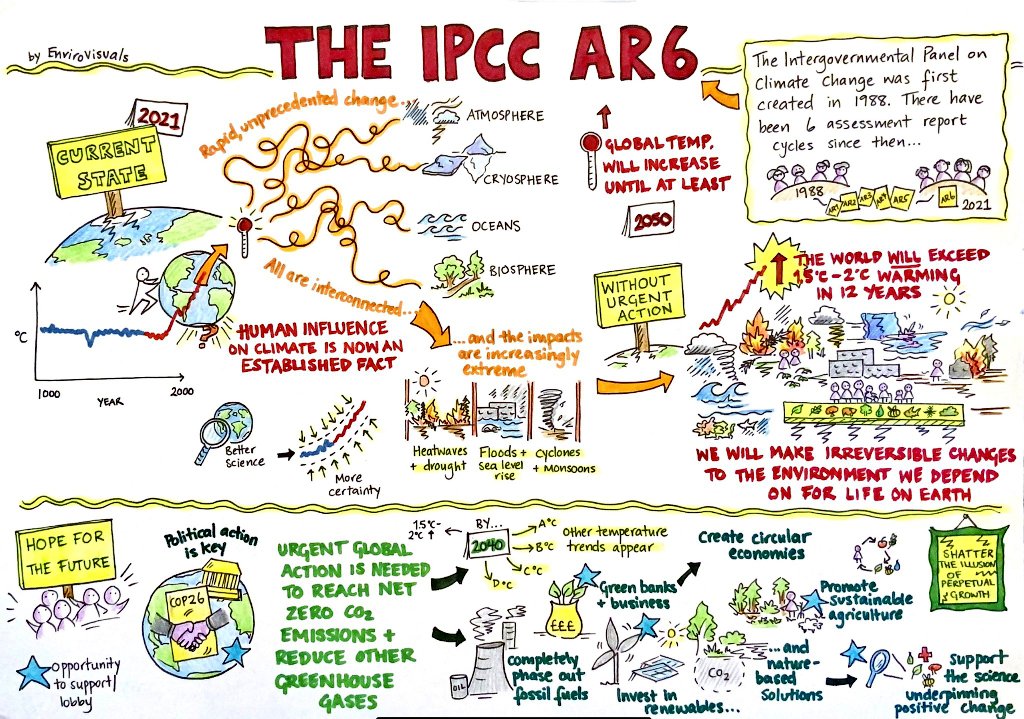 by EnviroVisuals
THE IPCC AR6
The Intergovernmental Panel on
Climate Change was first
created in 1988. There have
been 6 assessment report
cycles since then...
1988
AR1
AR2
AR3
AR4
AR5
AR6
2021
2021
CURRENT
STATE
Rapid, unprecedented change...
ATMOSPHERE
CRYOSPHERE
OCEANS
BIOSPHERE
All are interconnected...
GLOBAL TEMP.
WILL INCREASE
UNTIL AT LEAST
2050
°C
1000
2000
YEAR
?
HUMAN INFLUENCE
ON CLIMATE IS NOW AN
ESTABLISHED FACT
Better
Science
More
certainty
...and the impacts
are increasingly
extreme
Heatwaves
+ drought
Floods +
sea level
rise
cyclones
+ Monsoons
WITHOUT
URGENT
ACTION
THE WORLD WILL EXCEED
1.5°C-2°C WARMING
IN 12 YEARS
WE WILL MAKE IRREVERSIBLE CHANGES
TO THE ENVIRONMENT WE DEPEND
ON FOR LIFE ON EARTH
HOPE FOR
THE FUTURE
opportunity
to support/
lobby
Political action
is key
COP26
URGENT GLOBAL
ACTION IS NEEDED
TO REACH NET
ZERO CO2
EMISSIONS +
REDUCE OTHER
GREENHOUSE
GASES
BY...
2040
1.5°C-
2°C
A°C
B°C
C°C
D°C
Other temperature
trends appear
OIL
completely
phase out
fossil fuels
£££
Green banks
+ business
Invest in
renewables...
CO2
...and
nature-
based
Solutions
Create circular
economies
Promote
sustainable
agriculture
SHATTER
THE ILLUSION
OF
PERPETUAL
GROWTH
Support
the science
underpinning
positive change